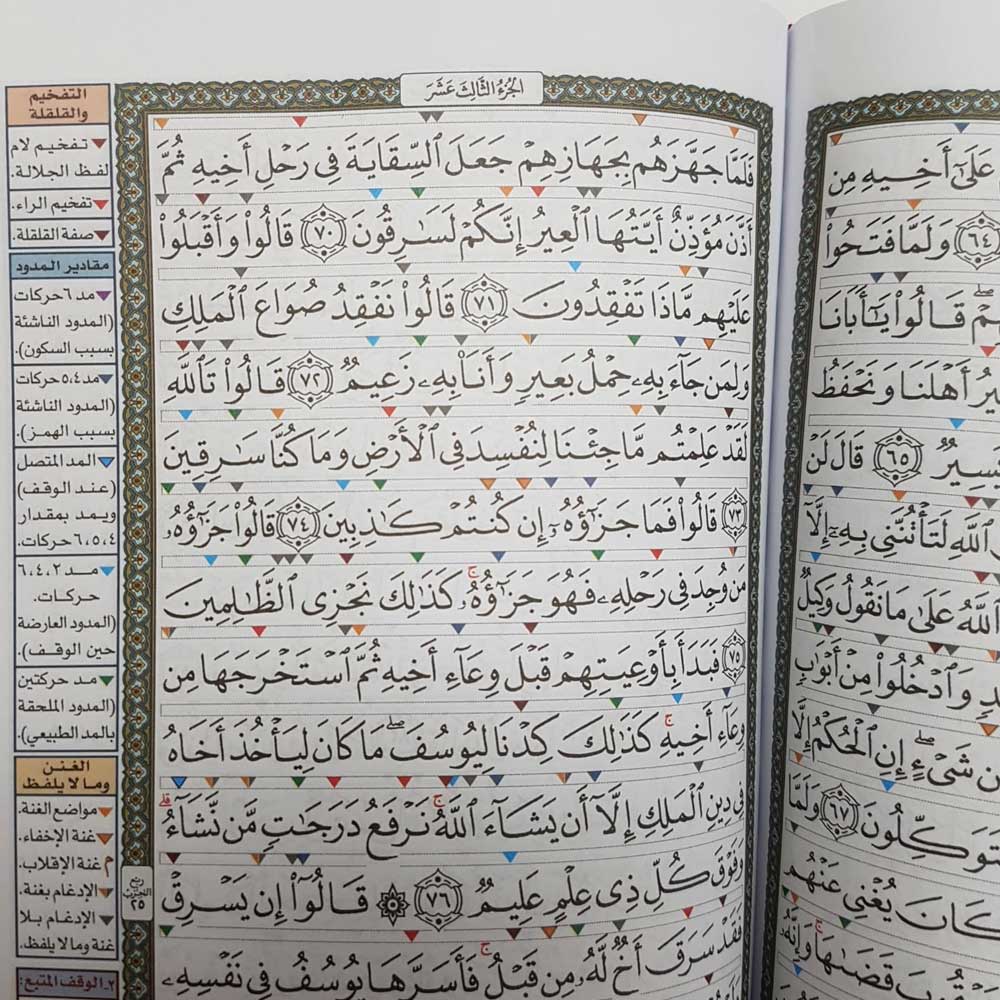 الجُزْءُ الثَّالِثَ عَشَرَ
عَلَىٰٓ أَخِيهِ مِن
٦٤ وَلَمَّا فَتَحُوا۟
قَالُوا۟ يَٰٓأَبَانَا
أَهْلَنَا وَنَحْفَظُ
٦٥ قَالَ لَنْ
ٱللَّهِ لَتَأْتُنَّنِى بِهِۦٓ إِلَّآ
ٱللَّهُ عَلَىٰ مَا نَقُولُ وَكِيلٌ
وَٱدْخُلُوا۟ مِنْ أَبْوَٰبٍ
شَىْءٍ ۖ إِنِ ٱلْحُكْمُ إِلَّا
٦٧ وَلَمَّا
كَانَ يُغْنِى عَنْهُم
قَضَىٰهَا ۚ وَإِنَّهُۥ
فَلَمَّا جَهَّزَهُم بِجَهَازِهِمْ جَعَلَ ٱلسِّقَايَةَ فِى رَحْلِ أَخِيهِ ثُمَّ
أَذَّنَ مُؤَذِّنٌ أَيَّتُهَا ٱلْعِيرُ إِنَّكُمْ لَسَٰرِقُونَ ٧٠ قَالُوا۟ وَأَقْبَلُوا۟
عَلَيْهِم مَّاذَا تَفْقِدُونَ ٧١ قَالُوا۟ نَفْقِدُ صُوَاعَ ٱلْمَلِكِ
وَلِمَن جَآءَ بِهِۦ حِمْلُ بَعِيرٍ وَأَنَا۠ بِهِۦ زَعِيمٌ ٧٢ قَالُوا۟ تَٱللَّهِ
لَقَدْ عَلِمْتُم مَّا جِئْنَا لِنُفْسِدَ فِى ٱلْأَرْضِ وَمَا كُنَّا سَٰرِقِينَ
٧٣ قَالُوا۟ فَمَا جَزَٰٓؤُهُۥٓ إِن كُنتُمْ كَٰذِبِينَ ٧٤ قَالُوا۟ جَزَٰٓؤُهُۥ
مَن وُجِدَ فِى رَحْلِهِۦ فَهُوَ جَزَٰٓؤُهُۥ ۚ كَذَٰلِكَ نَجْزِى ٱلظَّٰلِمِينَ
٧٥ فَبَدَأَ بِأَوْعِيَتِهِمْ قَبْلَ وِعَآءِ أَخِيهِ ثُمَّ ٱسْتَخْرَجَهَا مِن
وِعَآءِ أَخِيهِ ۚ كَذَٰلِكَ كِدْنَا لِيُوسُفَ ۖ مَا كَانَ لِيَأْخُذَ أَخَاهُ
فِى دِينِ ٱلْمَلِكِ إِلَّآ أَن يَشَآءَ ٱللَّهُ ۚ نَرْفَعُ دَرَجَٰتٍ مَّن نَّشَآءُ ۗ
وَفَوْقَ كُلِّ ذِى عِلْمٍ عَلِيمٌ ٧٦ ۞ قَالُوٓا۟ إِن يَسْرِقْ
فَقَدْ سَرَقَ أَخٌ لَّهُۥ مِن قَبْلُ ۚ فَأَسَرَّهَا يُوسُفُ فِى نَفْسِهِۦ
التفخيم
والقلقلة
تفخيم لام
لفظ الجلالة.
تفخيم الراء.
صفة القلقلة.
مقادير المدود
مد ٦ حركات
(المدود الناشئة
بسبب السكون).
مد ٤، ٥ حركات
(المدود الناشئة
بسبب الهمز).
المد المتصل
(عند الوقف)
ويمد بمقدار
٤، ٥، ٦ حركات.
مد ٢، ٤، ٦
حركات.
(المدود العارضة
حين الوقف).
مد حركتين
(المدود الملحقة
بالمد الطبيعي).
الغنن
وما لا يلفظ
مواضع الغنة.
غنة الإخفاء.
م غنة الإقلاب.
الإدغام بغنة.
الإدغام بلا
غنة وما لا يلفظ.
٢ـ الوقف المتبع: